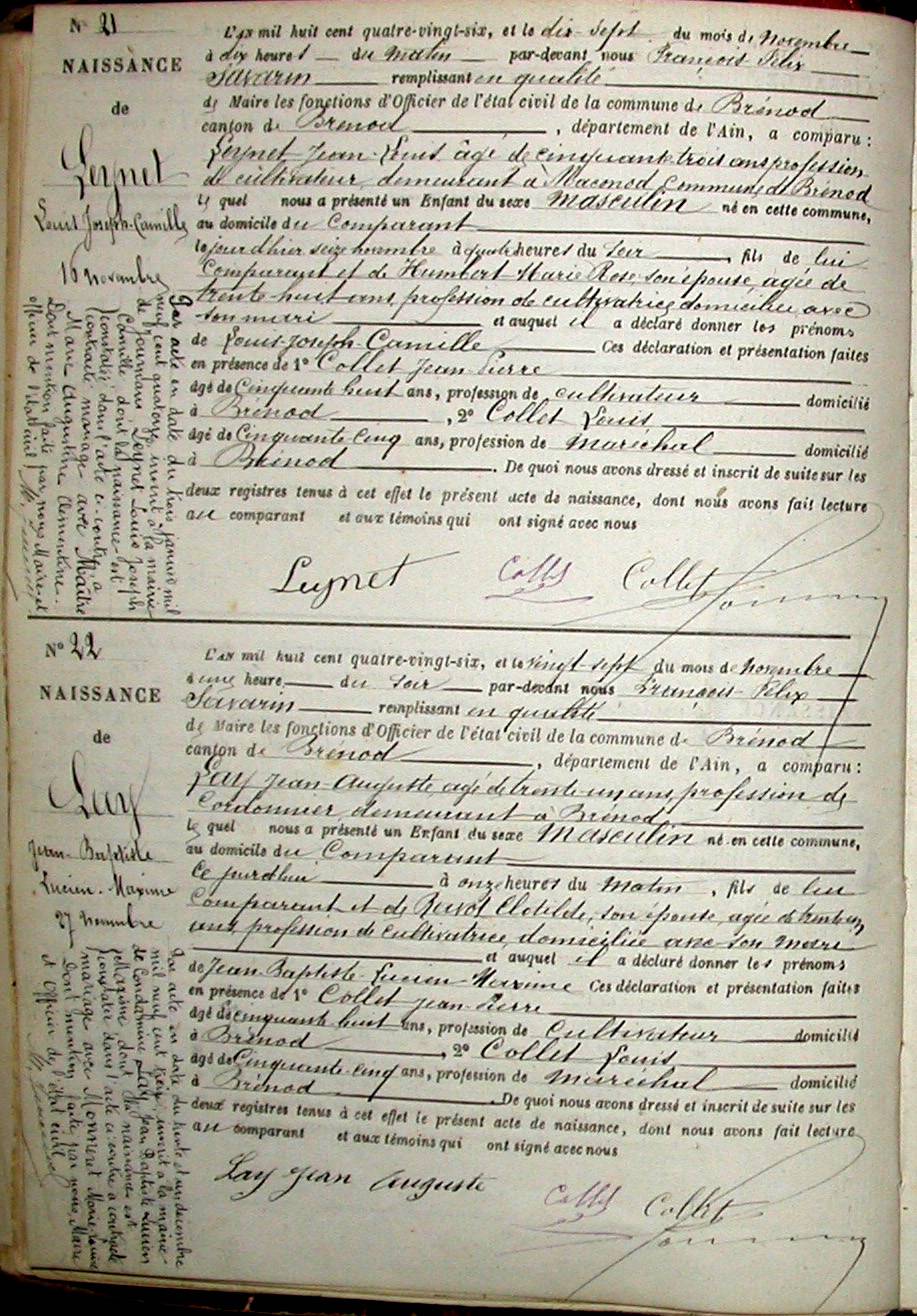 N° 21
NAISSANCE
de
Leynet
Louis Joseph-Camille
16 novembre
L'AN mil huit cent quatre-vingt-six, et le dix-sept du mois de Novembre
à dix heures du matin par-devant nous François Félix
Savarin remplissant en qualité
de Maire les fonctions d'Officier de l'état civil de la commune de Brénod
canton de Brénod, département de l'Ain, a comparu :
Leynet Jean-Louis âgé de cinquante trois ans profession
de cultivateur, demeurant à Maconod Commune de Brénod
le quel nous a présenté un Enfant du sexe Masculin né en cette commune,
au domicile du Comparant
le jour d'hier seize novembre à quatre heures du soir, fils de lui
Comparant et de Humbert Marie Rose, son épouse, agée de
trente huit ans, profession de cultivatrice domiciliée avec
son mari et auquel il a déclaré donner les prénoms
de Louis-Joseph-Camille Ces déclaration et présentation faites
en présence de 1° Collet Jean-Pierre
âgé de Cinquante huit ans, profession de cultivateur domicilié
à Brénod, 2° Collet Louis
âgé de Cinquante cinq ans, profession de maréchal domicilié
à Brénod. De quoi nous avons dressé et inscrit de suite sur les
deux registres tenus à cet effet le présent acte de naissance, dont nous avons fait lecture
au comparant et aux témoins qui ont signé avec nous
Leynet Collet Collet
Par acte en date du trois janvier mil
neuf cent quatorze inscrit à la mairie
de Journans, Leynet Louis Joseph
Camille dont la naissance est
constatée dans l'acte ci-contre, a
contracté mariage avec Maître
Marie Augustine Clémentine.
Dont mention faite par nous Maire et
officier de l'état civil
N° 22
NAISSANCE
de
Lay
Jean-Baptiste
Lucien-Maxime
27 novembre
L'AN mil huit cent quatre-vingt-six, et le vingt-sept du mois de Novembre
à une heure du soir par-devant nous François-Félix
Savarin remplissant en qualité
de Maire les fonctions d'Officier de l'état civil de la commune de Brénod
canton de Brénod, département de l'Ain, a comparu :
Lay Jean-Auguste agé de trente-un ans, profession de
Cordonnier demeurant à Brénod
le quel nous a présenté un Enfant du sexe Masculin né en cette commune,
au domicile du Comparant
ce jourdhui à onze heures du matin, fils de lui
Comparant et de Clotilde, son épouse, agée de trente un
ans, profession de cultivatrice, domiciliée avec son mari
et auquel il a déclaré donner les prénoms
de Jean-Baptiste-Lucien-Maxime Ces déclaration et présentation faites
en présence de 1° Collet Jean-Pierre
âgé de cinquante huit ans, profession de Cultivateur domicilié
à Brénod, 2° Collet Louis
âgé de Cinquante-cinq ans, profession de Maréchal domicilié
à Brénod. De quoi nous avons dressé et inscrit de suite sur les
deux registres tenus à cet effet le présent acte de naissance, dont nous avons fait lecture
au comparant et aux témoins qui ont signé avec nous
Lay Jean Auguste Collet Collet
Par acte en date du trente et un décembre
mil neuf cent treize, inscrit à la mairie
de Condamine, Lay Jean Baptiste Lucien
Maxime dont la naissance est
constatée dans l'acte ci-contre a contracté
mariage avec Monneret Marie Louise
Dont mention faite par nous, Maire
et Officier de l'état civil